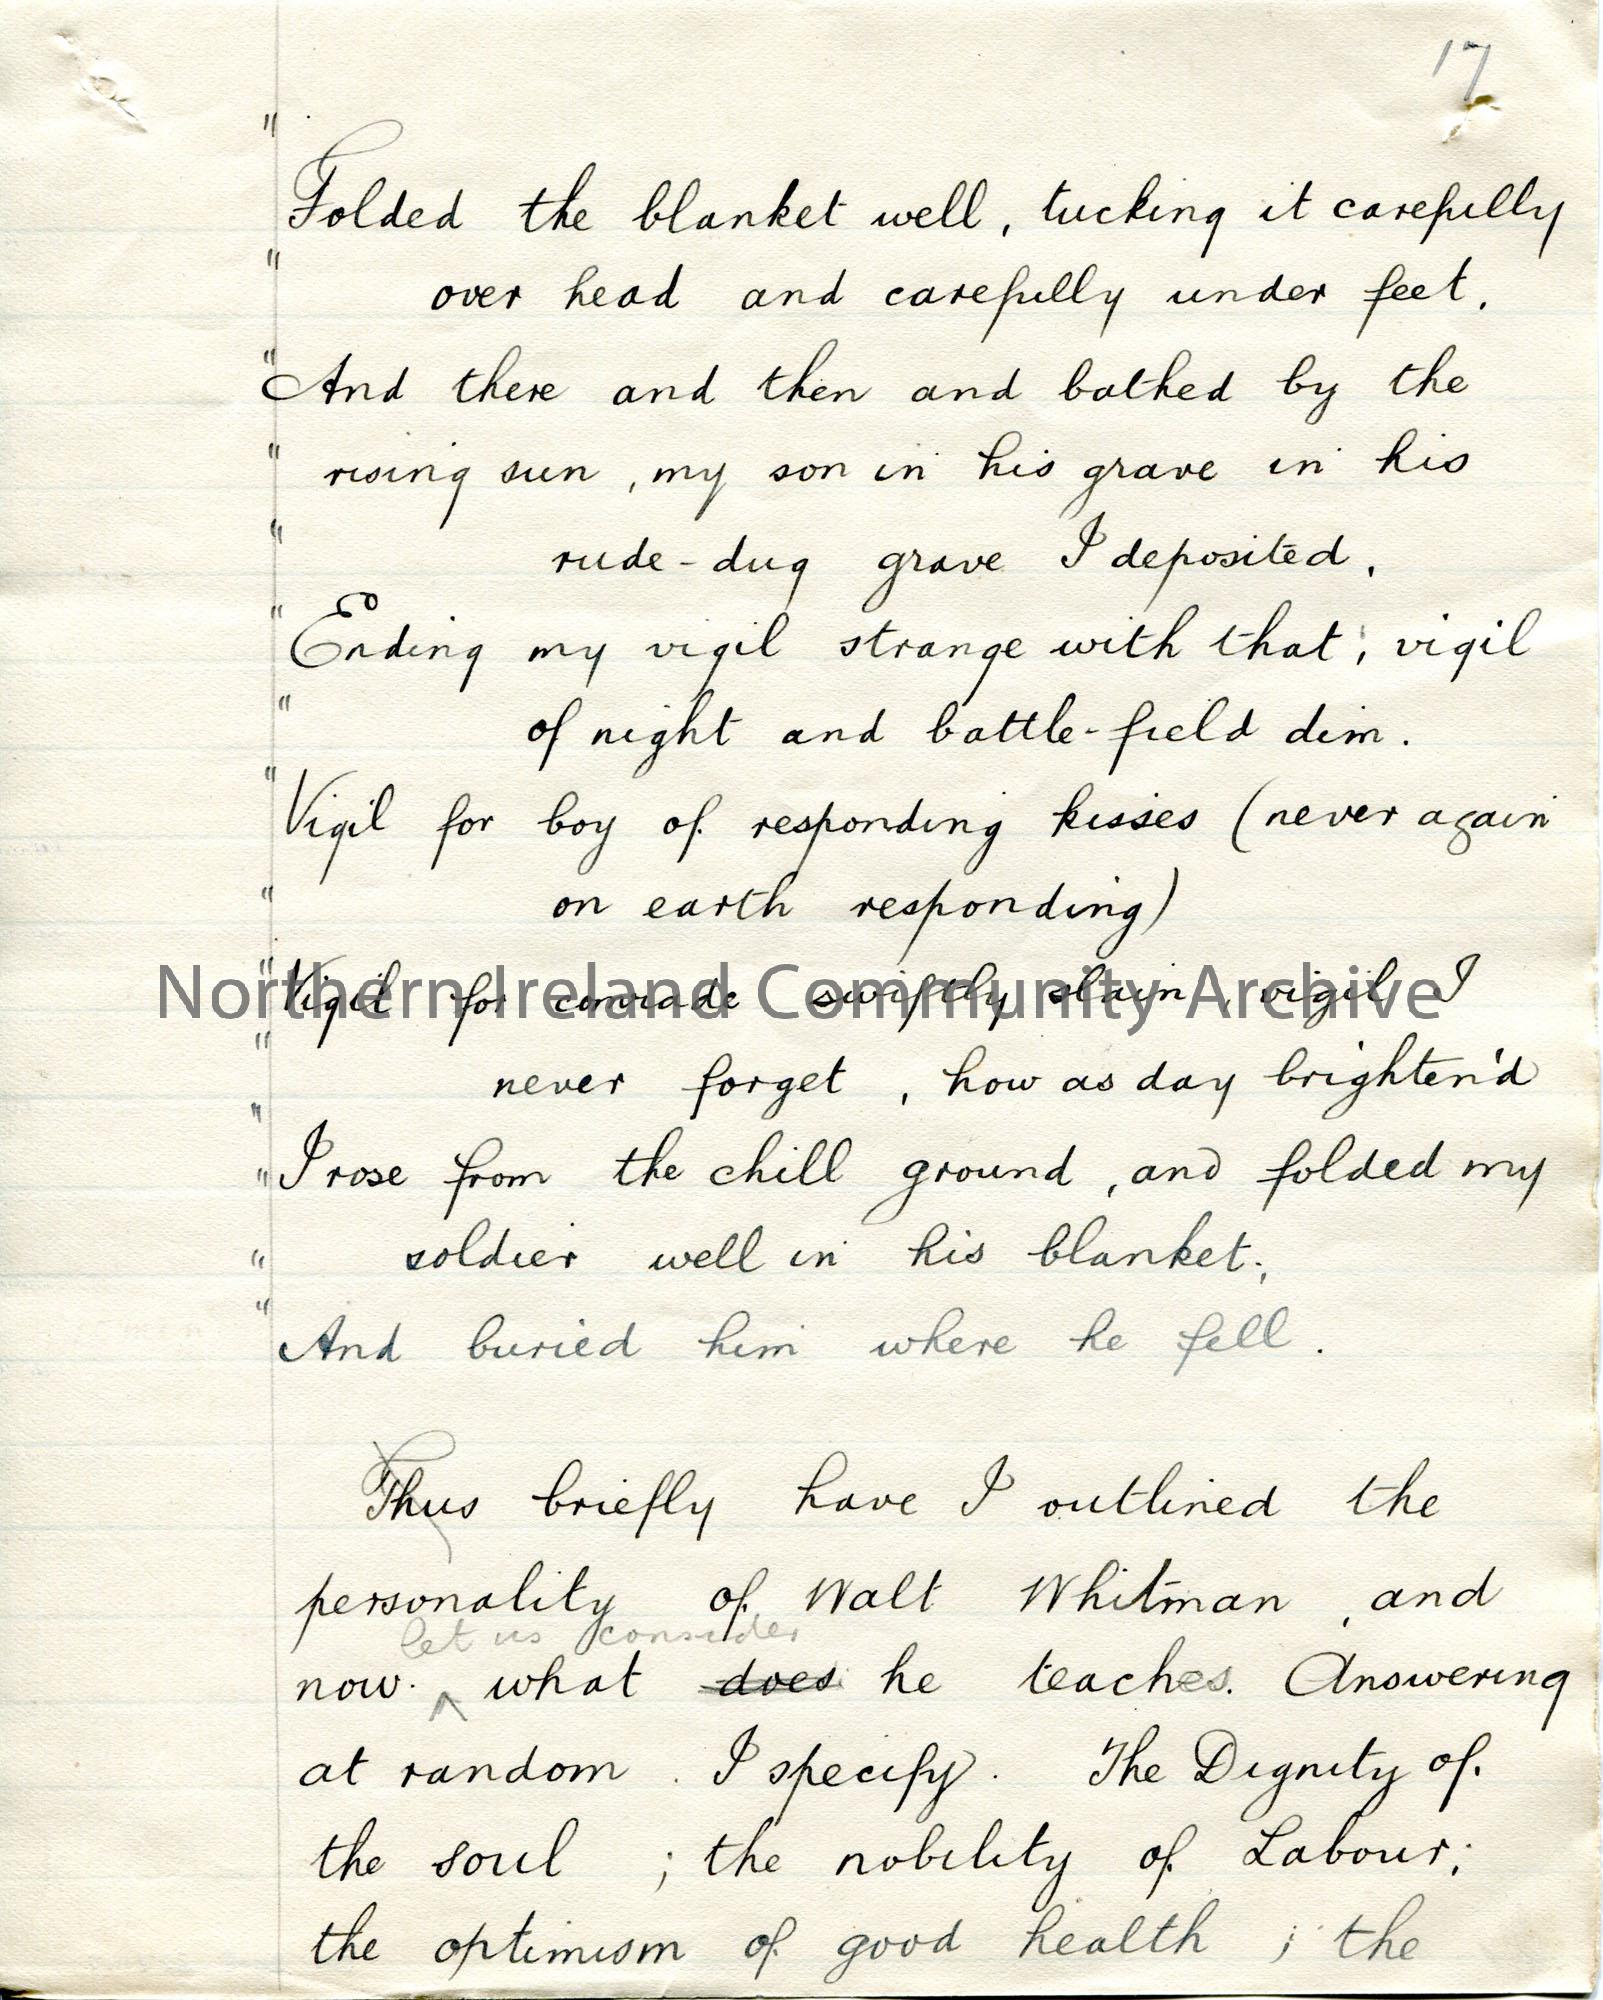 17
"
Folded the blanket well, tucking it carefully
" over head and carefully under feet,
" And there and then and bathed by the
" rising sun, my son in his grave in his
" rude-dug grave I deposited,
" Ending my vigil strange with that; vigil
" of night and battle-field dim.
" Vigil for boy of responding kisses (never again
" on earth responding)
" Vigil for comrade swiftly slain, vigil I
" never forget, how as day brighten'd
"
" I rose from the chill ground, and folded my
" soldier well in his blanket;
" And buried him where he fell.
Thus briefly have I outlined the
personality of Walt Whitman, and
let us consider
now. ^ what does he teaches. Answering
at random. I specify. The Dignity of
the soul; the nobility of Labour;
the optimism of good health; the
Northern Ireland Community Archive